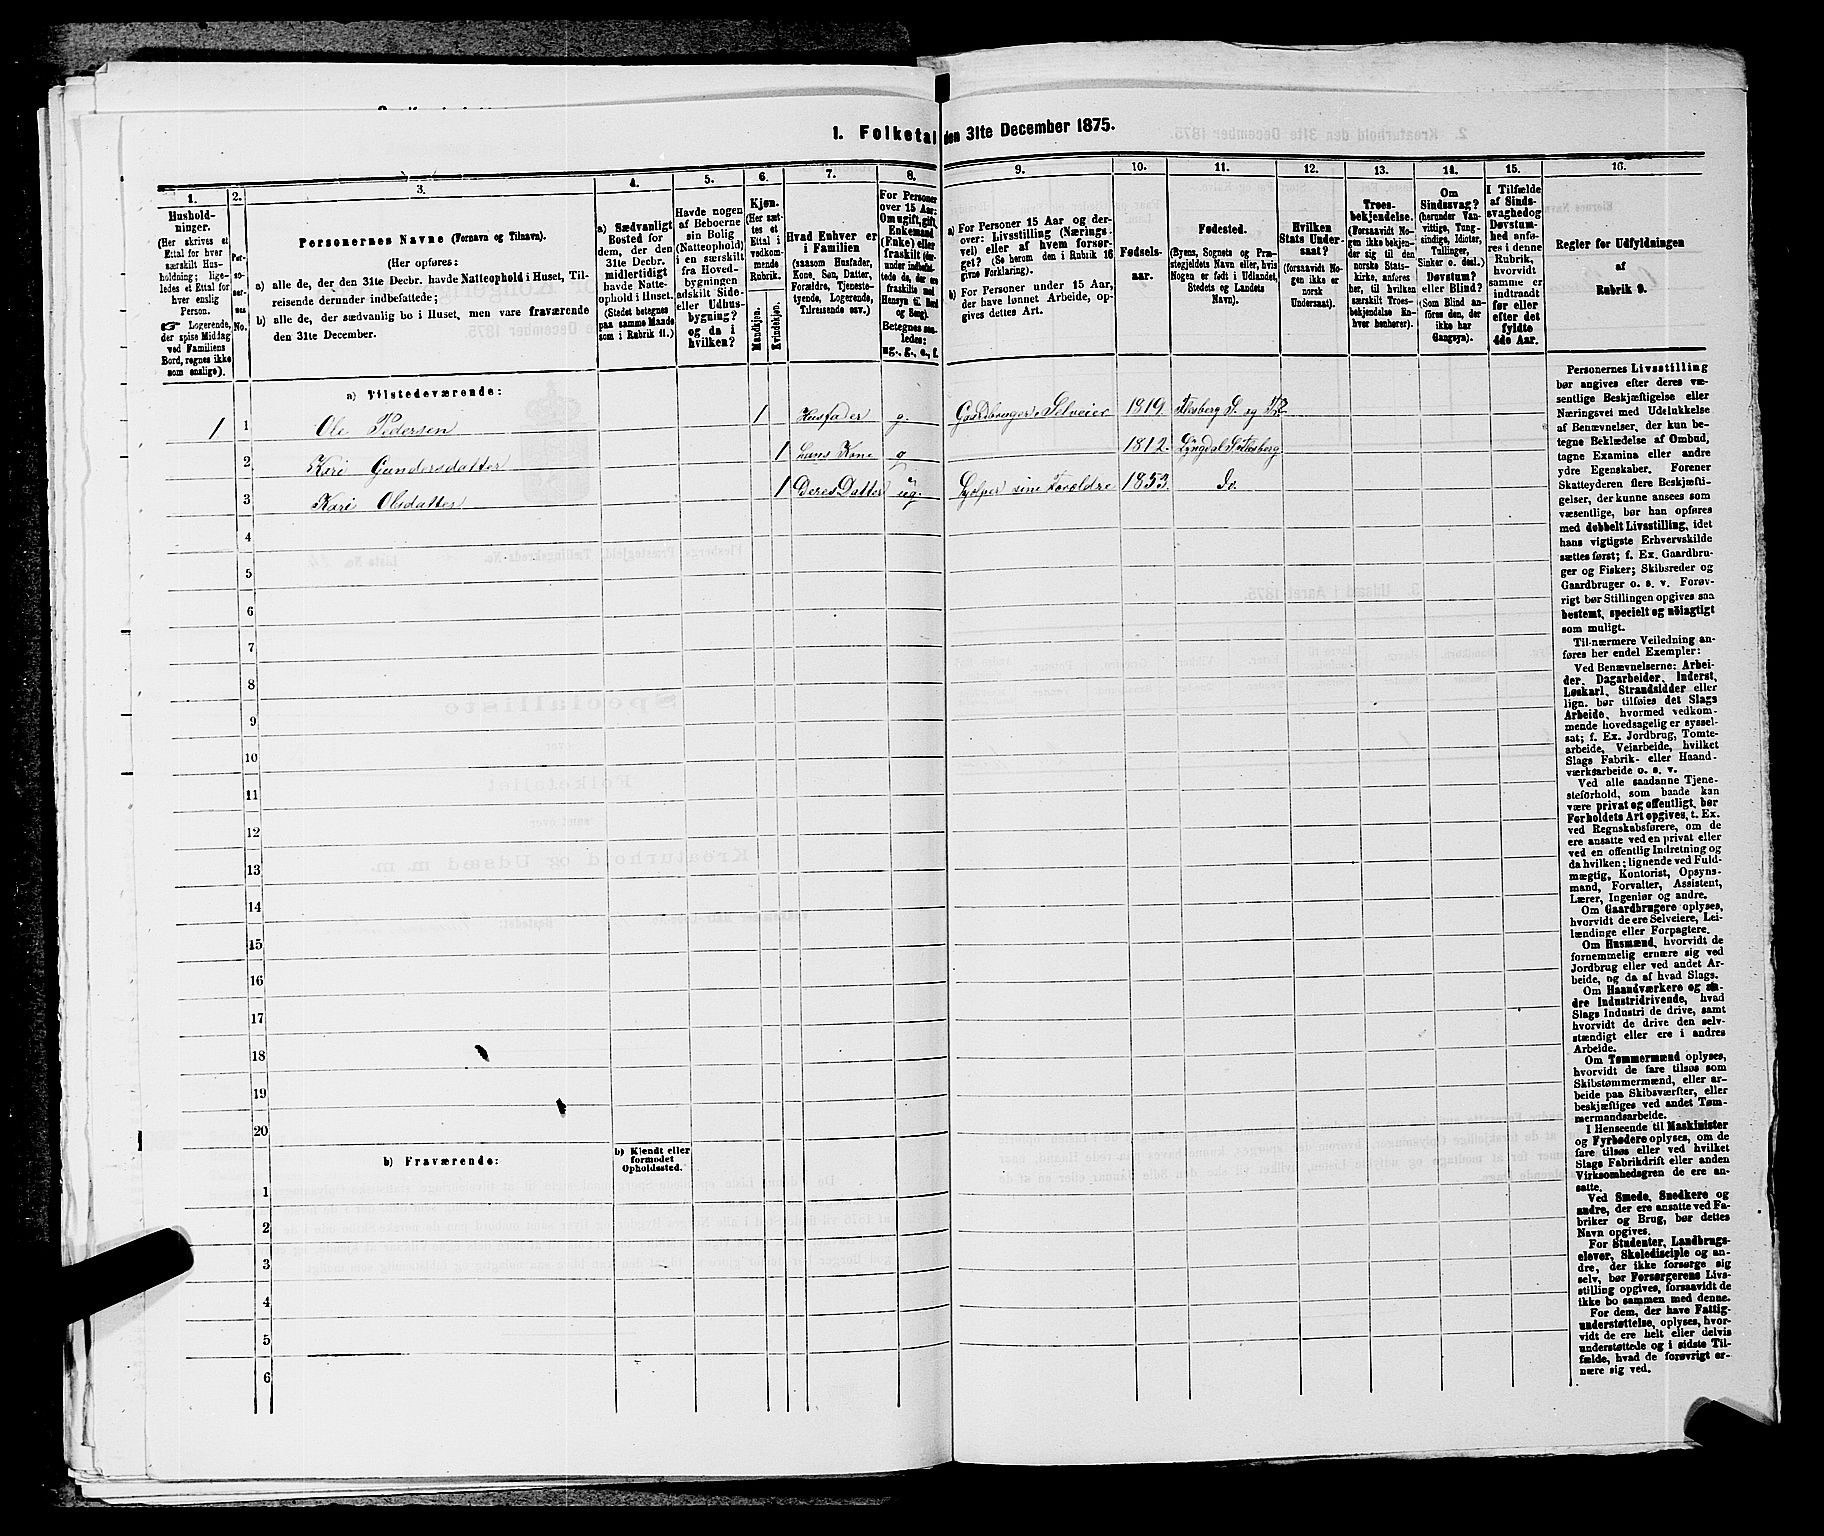 1. Folketal den 31te December 1875.
1.
Hushold-
ninger.
(Her skrives et
Ettal for hver
særskilt Hus-
holdning; lige-
ledes et Ettal for
hver enslig
Person.
☞ Logerende,
der spise Middag
ved Familiens
Bord, regnes ikke
som enslige).
2.
Per-
so-
ner-
nes
No.
3.
Personernes Navne (Fornavn og Tilnavn).
(Her opføres:
a) alle de, der den 31te Decbr. havde Natteophold i Huset, Til-
reisende derunder indbefattede;
b) alle de, der sædvanlig bo i Huset, men vare fraværende
den 31te December.
4.
a) Sædvanligt
Bosted for
dem, der den
31te Decbr.
midlertidigt
havde Natte-
ophold i Huset.
(Stedet betegnes
paa samme Maade
som i Rubrik 11.)
5.
Havde nogen
af Beboerne
sin Bolig
(Natteophold)
i en særskilt
fra Hoved-
bygningen
adskilt Side-
eller Udhus-
bygning?
og da i
hvilken?
6.
Kjøn.
(Her sæt-
tes et
Ettal i
vedkom-
mende
Rubrik.
Mandkjøn.
Kvindekjøn.
7.
Hvad Enhver er
i Familien
(saasom Husfader,
Kone, Søn, Datter,
Forældre, Tjeneste-
tyende, Logerende,
Tilreisende osv.)
8.
For Personer
over 15 Aar:
Om ugift, gift,
Enkemand
(Enke) eller
fraskilt
Betegnes saa-
ledes:
ug., g., e., f.
9.
a) For Personer 15 Aar og der-
over: Livsstilling (Nærings-
vei) eller af hvem forsør-
get? (Se herom den i Rubrik 16
givne Forklaring).
b) For Personer under 15 Aar,
der have lønnet Arbeide, op-
gives dettes Art.
10.
Fødsels-
aar.
11.
Fødested.
(Byens, Sognets og Præ-
stegjeldets Navn eller, hvis
Nogen er født i Udlandet,
Stedets og Landets
Navn).
12.
Hvilken
Stats Under-
saat?
(forsaavidt No-
gen ikke er
norsk
Undersaat).
13.
Troes-
bekjendelse.
(Forsaavidt No-
gen ikke bekjen-
der sig til den
norske Stats-
kirke, anføres
her, til hvilken
særskilt Troes-
bekjendelse En-
hver henhører).
14.
Om
Sindssvag?
(herunder Van-
vittige, Tung-
sindige, Idioter,
Tullinger,
Sinker o. desl.)
Døvstum?
eller Blind?
(Som Blind an-
føres den, der
ikke har
Gangsyn).
15.
I Tilfælde
af Sinds-
svaghed og
Døvstum-
hed anfø-
res i denne
Rubrik,
hvorvidt
samme er
indtraadt
før eller
efter det
fyldte
4de Aar.
16.
Regler for Udfyldningen
af
Rubrik 9.
a) Tilstedeværende:
1 1 Ole Pedersen 1 Husfader g. Gaardbruger Selveier 1819. Flesberg S. og
2 Kari Gundersdatter 1 hans Kone g 1812. Lyngdal S. Flesberg
3 Kari Olsdatter 1 Deres Datter ug. Hjelper sine Forældre 1853. do.
4
5
6
7
8
9
10
11
12
13
14
15
16
17
18
19
20
b) Fraværende:
b) Kjendt eller
formodet
Opholdssted.
1
2
3
4
5
6
Personernes Livsstilling
bør angives efter deres væ-
sentlige Beskjæftigelse eller
Næringsvei med Udelukkelse
af Benævnelser, der kun be-
tegne Beklædelse af Ombud,
tagne Examina eller andre
ydre Egenskaber. Forener
Skatteyderen flere Beskjæfti-
gelser, der kunne ansees som
væsentlige, bør han opføres
med dobbelt Livsstilling, idet
hans vigtigste Erhvervskilde
sættes først; f. Ex. Gaardbru-
ger og Fisker; Skibsreder og
Gaardbruger o. s. v. Forøv-
rigt bør Stillingen opgives saa
bestemt, specielt og nøiagtigt
som muligt.
Til nærmere Veiledning an-
føres her endel Exempler:
Ved Benævnelserne: Arbei-
der, Dagarbeider, Inderst,
Løskarl, Strandsidder eller
lign. bør tilføies det Slags
Arbeide, hvormed vedkom-
mende hovedsagelig er syssel-
sat; f. Ex. Jordbrug, Tomte-
arbeide, Veiarbeide, hvilket
Slags Fabrik- eller Haand-
værksarbeide o. s. v.
Ved alle saadanne Tjene-
steforhold, som baade kan
være privat og offentligt, bør
Forholdets Art opgives, t. Ex.
ved Regnskabsførere, om de
ere ansatte ved en privat eller
ved en offentlig Indretning og
da hvilken; lignende ved Fuld-
mægtig, Kontorist, Opsyns-
mand, Forvalter, Assistent,
Lærer, Ingeniør og andre.
Om Gaardbrugere oplyses,
hvorvidt de ere Selveiere, Lei-
lændinge eller Forpagtere.
Om Husmænd, hvorvidt de
fornemmelig ernære sig ved
Jordbrug eller ved andet Ar-
beide, og da af hvad Slags.
Om Haandværkere og an-
dre Industridrivende, hvad
Slags Industri de drive, samt
hvorvidt de drive den selv-
stændigt eller ere i andres
Arbeide.
Om Tømmermænd oplyses,
hvorvidt de fare tilsøs som
Skibstømmermænd, eller ar-
beide paa Skibsværfter, eller
beskjæftiges ved andet Tøm-
mermandsarbeide.
I Henseende til Maskinister
og Fyrbødere oplyses, om de
fare tilsøs eller ved hvilket
Slags Fabrikdrift eller anden
Virksomhedsgren de ere an-
satte.
Ved Smede, Snedkere og
andre, der ere ansatte ved Fa-
briker og Brug, bør dettes
Navn opgives.
For Studenter, Landbrugs-
elever, Skoledisciple og an-
dre, der ikke forsørge sig
selv, bør Forsørgerens Livs-
stilling opgives, forsaavidt de
ikke bo sammen med denne.
For dem, der have Fattig-
understøttelse, oplyses, hvor-
vidt de ere helt eller delvis
understøttede og i sidste Til-
fælde, hvad de forøvrigt er-
nære sig ved.